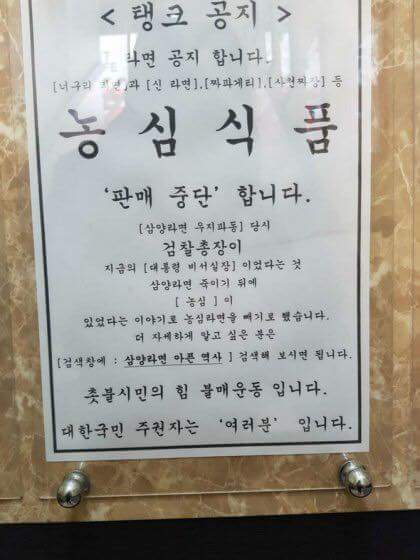 < 탱크 공지 >
라면 공지 합니다.
[너구리 라면]과 [신 라면],[짜파게티],[사천짜장] 등
농 심 식 품
‘판매 중단’ 합니다.
[삼양라면 우지파동] 당시
검찰총장이
지금의 [대통령 비서실장] 이었다는 것
삼양라면 죽이기 뒤에
[ 농심 ] 이
있었다는 이야기로 농심라면을 빼기로 했습니다.
더 자세하게 알고 싶은 분은
[검색창에 : 삼양라면 아픈 역사 ] 검색해 보시면 됩니다.
촛불시민의 힘 불매운동 입니다.
대한국민 주권자는 ‘여러분’ 입니다.